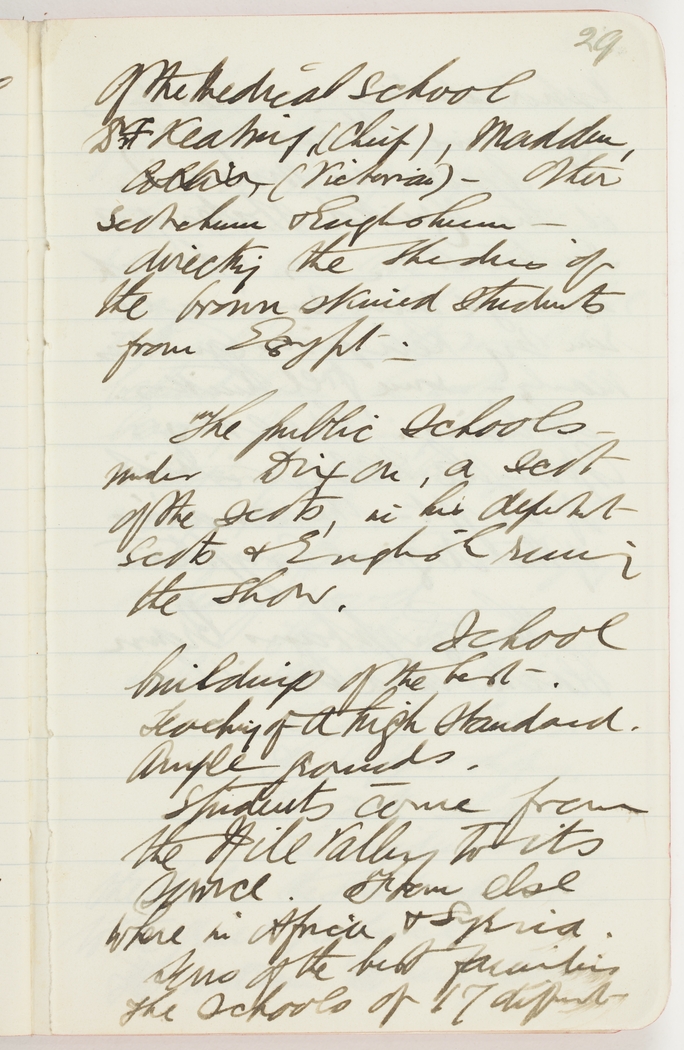 29
Of the Medical School
Drs Keating, (Chief), Madden,
(Victorian) - Other
Scotchmen & Englishmen -
directing the studies of
the brown skinned students
from Egypt -.
"The public schools -
under Dixon, a Scot
of the Scots, in his depart
Scots & English running
the show.
School
buildings of the best -.
Teaching of a high standard.
Ample grounds.
Students come from
the Nile Valley to its
source. From else
where in Africa & Syria.
Sons of the best families
The schools of 17 different